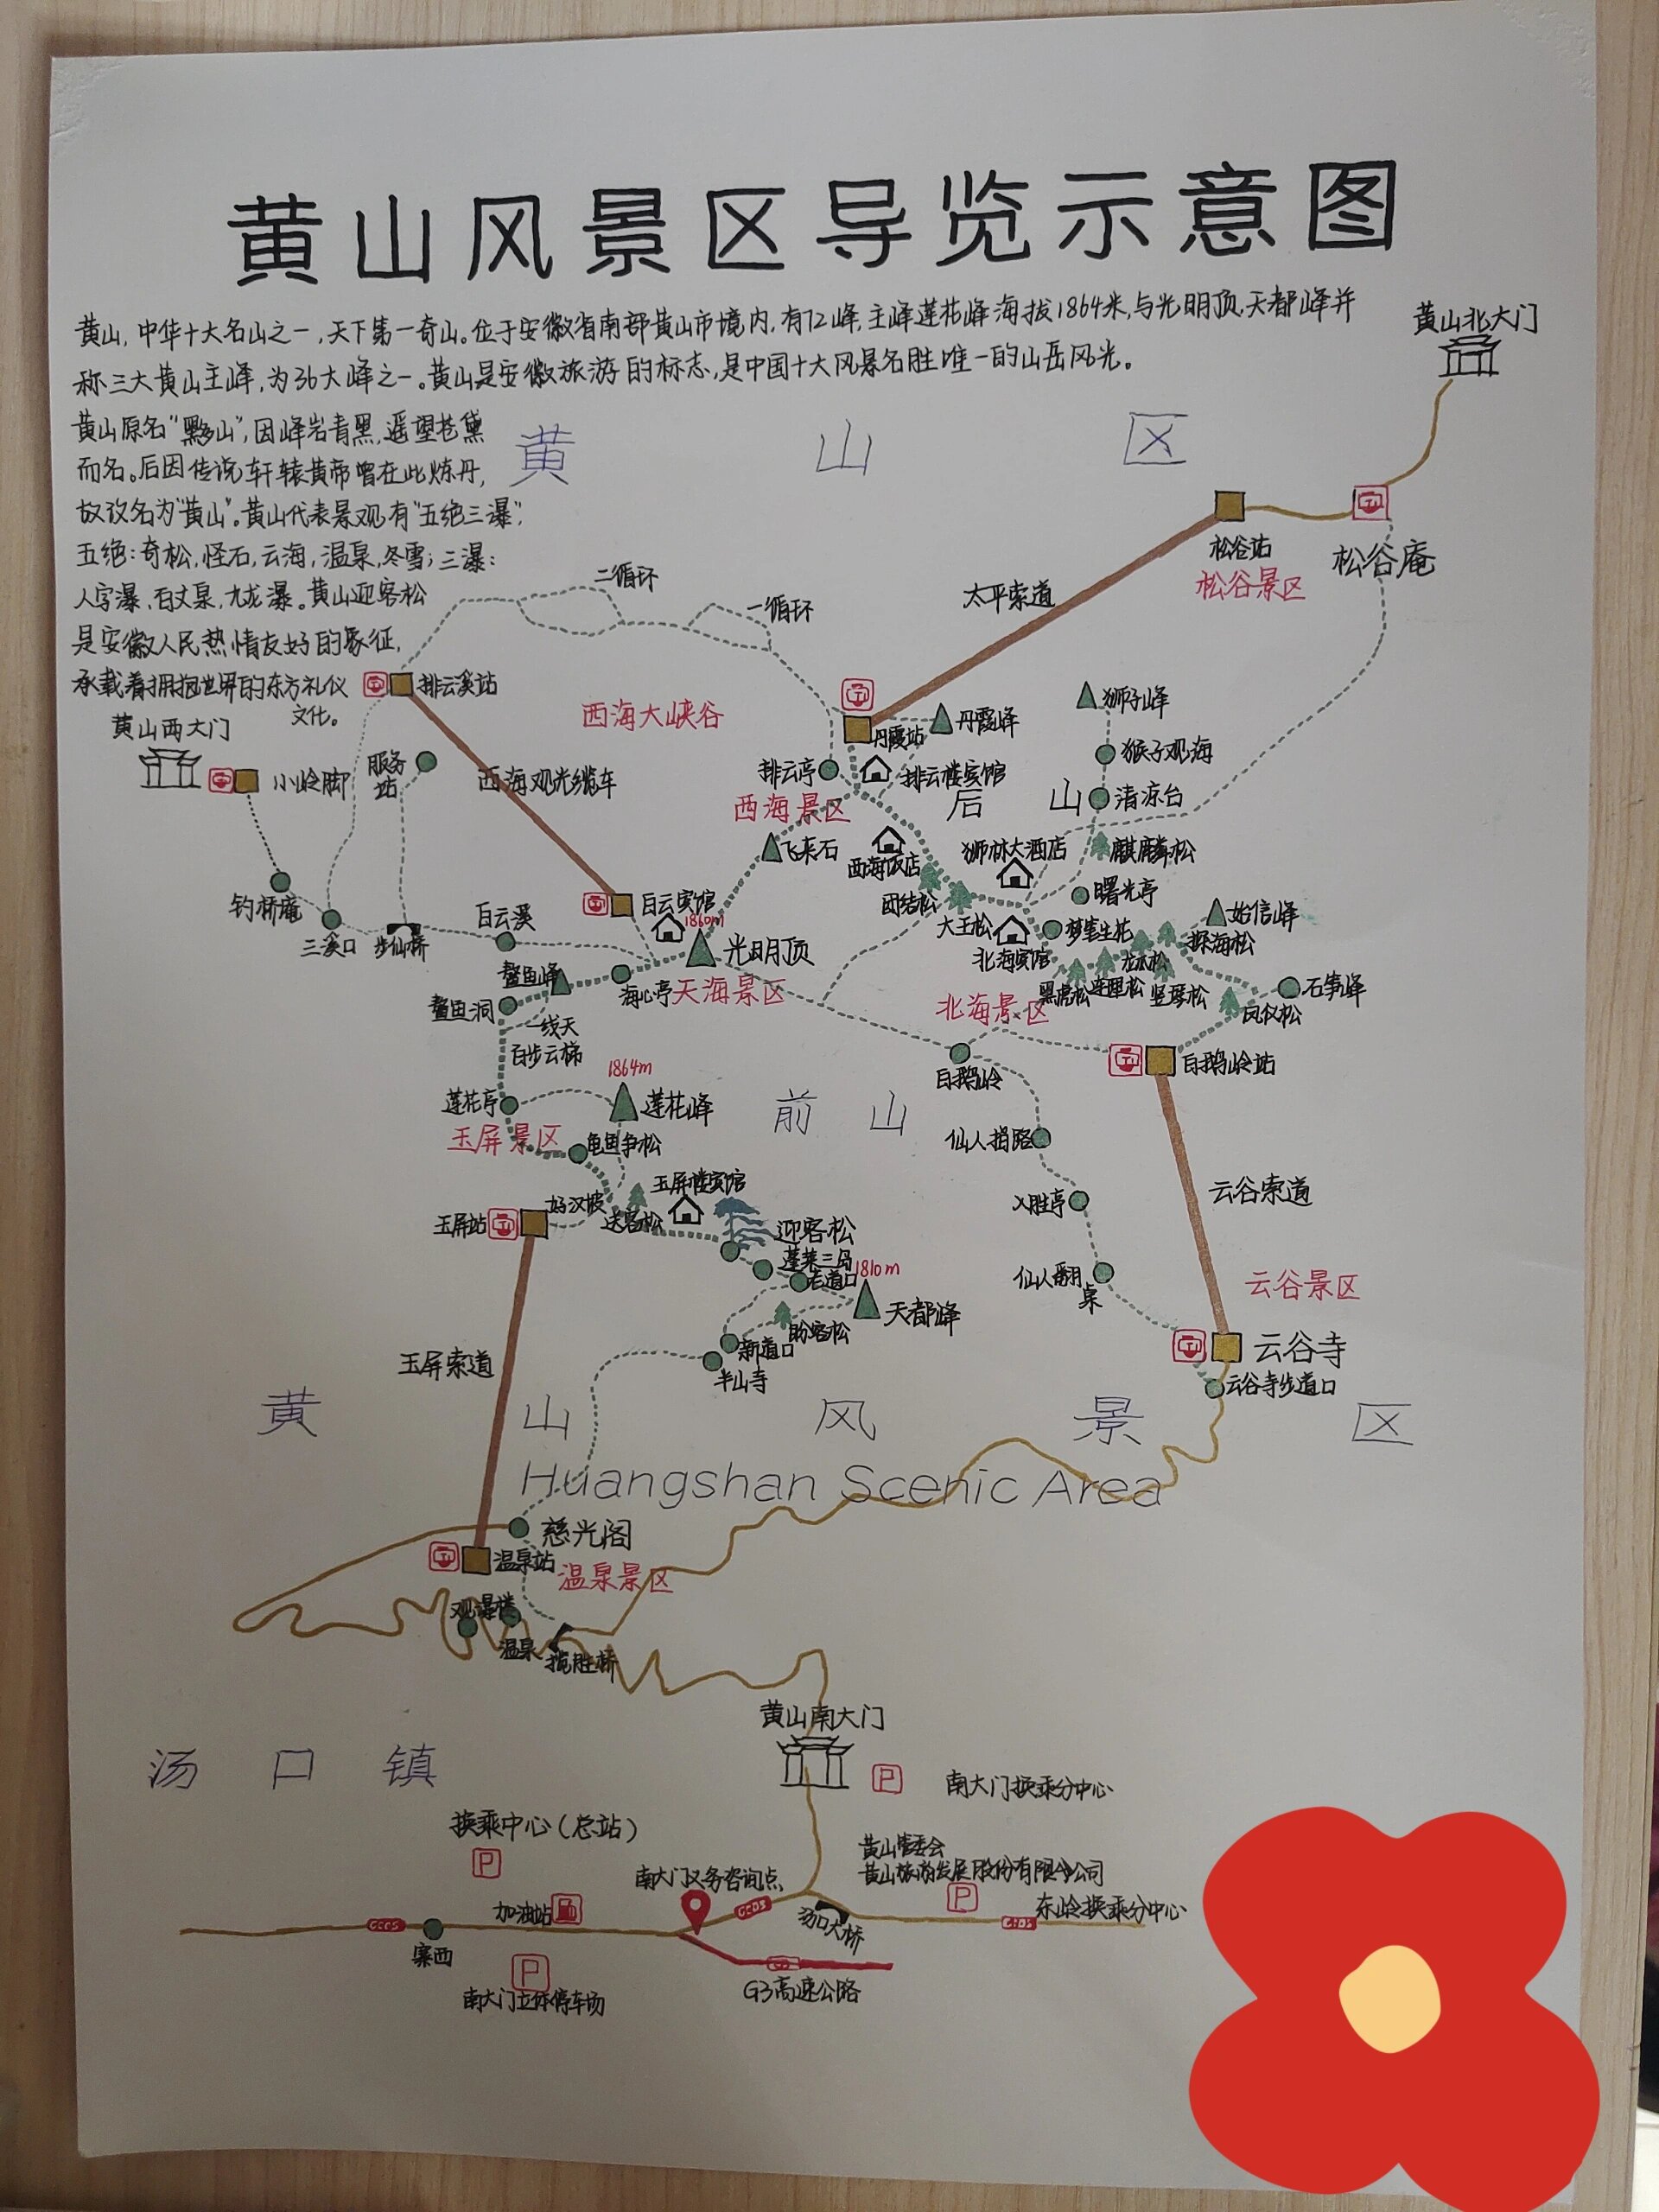 黄山风景区导览示意图
黄山，中华十大名山之一，天下第一奇山。位于安徽省南部黄山市境内，有72峰，主峰莲花峰海拔1864米，与光明顶、天都峰并
称三大黄山主峰，为36大峰之一。黄山是安徽旅游的标志，是中国十大风景名胜唯一的山岳风光。
黄山原名“黟山”，因峰岩青黑，遥望苍黛
而名。后因传说轩辕黄帝曾在此炼丹，
故改名为“黄山”。黄山代表景观有“五绝三瀑”，
五绝：奇松，怪石，云海，温泉，冬雪；三瀑：
人字瀑、百丈泉，九龙瀑。黄山迎客松
是安徽人民热情友好的象征，
承载着拥抱世界的东方礼仪
文化。
黄山北大门
黄山区
松谷站
松谷庵
松谷景区
太平索道
二循环
一循环
排云溪站
西海大峡谷
黄山西大门
小岭脚
服务
站
西海观光缆车
丹霞站
丹霞峰
狮子峰
猴子观海
排云亭
排云楼宾馆
后山
清凉台
西海景区
飞来石
西海饭店
狮林大酒店
麒麟松
团结松
曙光亭
钓桥庵
三溪口
步仙桥
白云溪
白云宾馆
1860m
光明顶
大王松
北海宾馆
梦笔生花
始信峰
探海松
龙爪松
黑虎松
连理松
竖琴松
石笋峰
凤仪松
鳌鱼峰
海心亭
天海景区
北海景区
鳌鱼洞
一线天
百步云梯
白鹅岭
白鹅岭站
1864m
莲花亭
莲花峰
前山
玉屏景区
龟鱼争松
仙人指路
玉屏站
好汉坡
送客松
玉屏楼宾馆
迎客松
蓬莱三岛
老道口
1810m
天都峰
入胜亭
云谷索道
仙人翻
桌
云谷景区
盼客松
新道口
半山寺
玉屏索道
云谷寺
云谷寺步道口
黄山风景区
Huangshan Scenic Area
慈光阁
温泉站
温泉景区
观瀑楼
温泉
揽胜桥
黄山南大门
汤口镇
P
南大门换乘分中心
换乘中心（总站）
P
黄山管委会
黄山旅游发展股份有限公司
P
南大门义务咨询点
加油站
东岭换乘分中心
汤口大桥
寨西
P
南大门立体停车场
G3高速公路